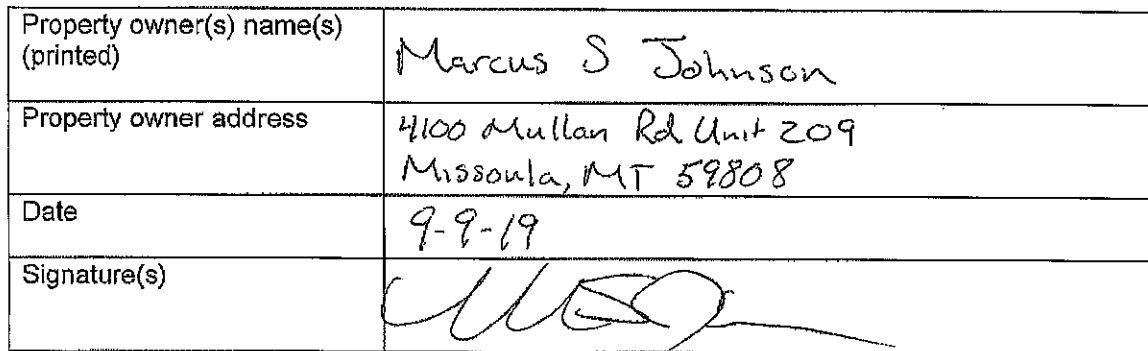 Property owner(s) name(s)
(printed)
Marcus S Johnson
Property owner address
4100 Mullan Rd Unit 209
Missoula, MT 59808
Date
9-9-19
Signature(s)